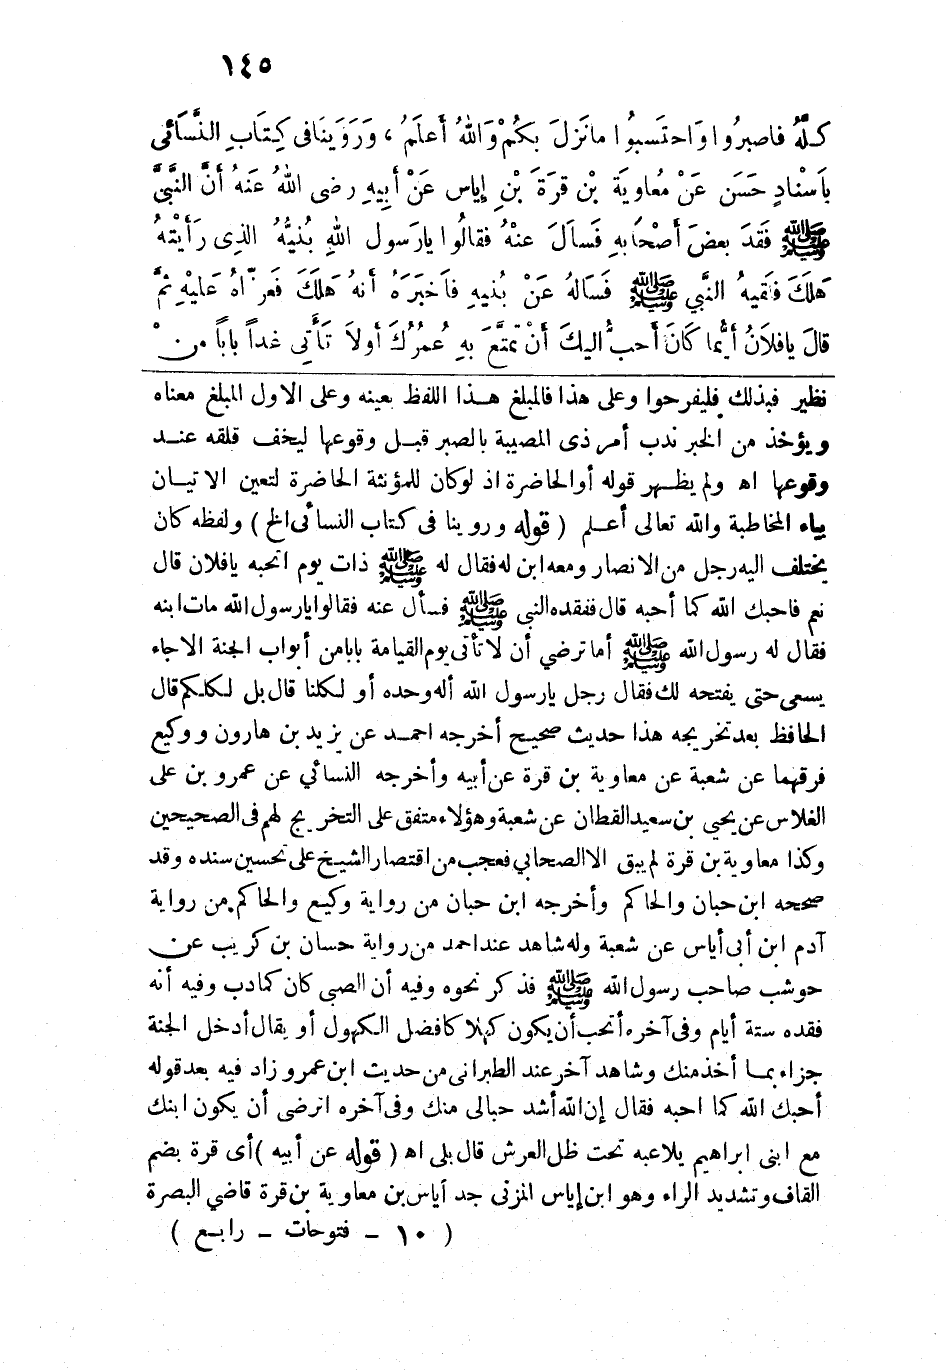 ١٤٥
كلَّهُ فاصبرُوا وَاحتَسبُوا مانَزلَ بكُمْ وَاللهُ أَعلَمُ ، وَرَوَينَا فى كِتَابِ النَّسَائى
بأَسْنادٍ حَسَن عَنْ مُعاويَةَ بْن قرَةَ بْنِ إياس عَنْ أَبيهِ رضى اللهُ عَنهُ أنَّ النَّبىَّ
ﷺ فَقدَ بعضَ أصْحَابهِ فَسأَلَ عنْهُ فقالُوا يارَسول اللهِ بُنيُّهُ الذِى رَأَيْتهُ
هَلكَ فلَقيهُ النَّبي ﷺ فَسَالهُ عَنْ بُنيهِ فأَخبَرَهُ أنهُ هَلكَ فَعزَّاهُ عَليْهِ ثمَّ
قالَ يافلَانُ أيُّما كَانَ أحبُّ اليكَ أنْ تمتَّعَ بهِ عُمرُكَ أولاَ تَأْتى غداً باباً منْ
نظير فبذلك فليفرحوا وعلى هذا فالمبلغ هـذا اللفظ بعينه وعلى الاول المبلغ معناه
ويؤخذ من الخبر ندب أمر ذى المصيبة بالصبر قبـل وقوعها ليخف قلقه عنـد
وقوعها اه ولم يظهـر قوله أو الحاضرة اذ لوكان للمؤنثة الحاضرة لتعين الاتيـان
بياء المخاطبة والله تعالى أعـلم ( قوله وروينا فى كتاب النسائى الخ ) ولفظه كان
يختلف اليه رجل من الانصار ومعه ابن له فقال له ﷺ ذات يوم اتحبه يافلان قال
نعم فاحبك الله كما أحبه قال ففقده النبى ﷺ فسأل عنه فقالوا يارسول الله مات ابنه
فقال له رسول الله ﷺ أما ترضي أن لا تأتى يوم القيامة بابا من أبواب الجنة الا جاء
يسعى حتى يفتحه لك فقال رجل يارسول الله أله وحده أو لكلنا قال بل لكلكم قال
الحافظ بعد تخريجه هذا حديث صحيح أخرجه احمـد عن يزيد بن هارون ووكيع
فرقهما عن شعبة عن معاوية بن قرة عن أبيه وأخرجه النسائي عن عمرو بن على
الفلاس عن يحيى بن سعيد القطان عن شعبة وهؤلاء متفق على التخريج لهم فى الصحيحين
وكذا معاوية بن قرة لم يبق الا الصحابي فعجب من اقتصار الشيخ على تحسين سنده وقد
صححه ابن حبان والحاكم وأخرجه ابن حبان من رواية وكيـع والحاكم من رواية
آدم ابن أبى أياس عن شعبة وله شاهد عند احمد من رواية حسان بن كريب عن
حوشب صاحب رسول الله ﷺ فذكر نحوه وفيه أن الصبى كان كما دب وفيه أنه
فقده ستة أيام وفى آخره أتحب أن يكون كهلا كافضل الكهول أو يقال أدخل الجنة
جزاء بمـا أخذ منك وشاهد آخر عند الطبرانى من حديث ابن عمرو زاد فيه بعد قوله
أحبك الله كما احبه فقال إن الله أشد حبالى منك وفى آخره اترضى أن يكون ابنك
مع ابنى ابراهيم يلاعبه تحت ظل العرش قال بلى اه ( قوله عن أبيه ) أى قرة بضم
القاف وتشديد الراء وهو ابن إياس المزنى جد أياس بن معاوية بن قرة قاضي البصرة
( ١٠ - فتوحات - رابـع )